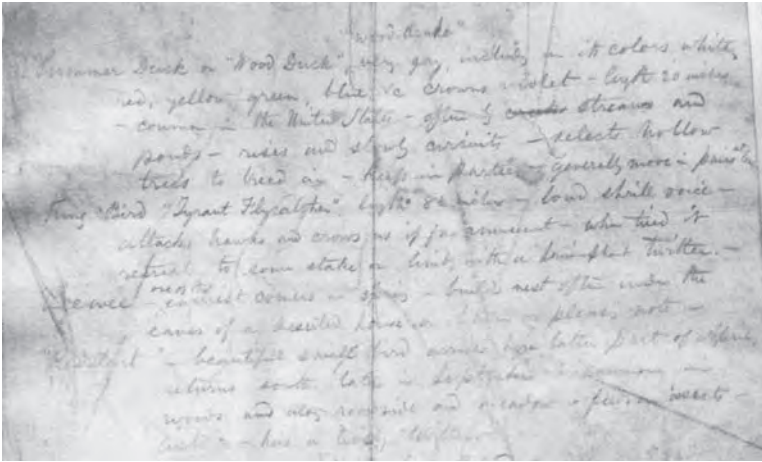 "Wood drake"
"Summer Duck or "Wood Duck", very gay, including in its colors white,
red, yellow, green, blue &c crown violet - length 20 inches
- common in the United States - often by streams and
ponds - rises and slowly - selects hollow
trees to breed in - keeps in parties - generally move in pairs
King Bird "Tyrant Flycatcher" length 8 inches - loud shrill voice -
attacks hawks and crows as if for amusement - when tired it
retreats to some stake or limb with a triumphant twitter. -
Peewee - earliest comers in spring - builds nest often under the
eaves of a deserted house or barn - pleasing note -
"Redstart" - beautiful small bird arrives here latter part of
returns south late in September - common in
woods and along roadside and meadow - feeds on insects -
has a lively twitter